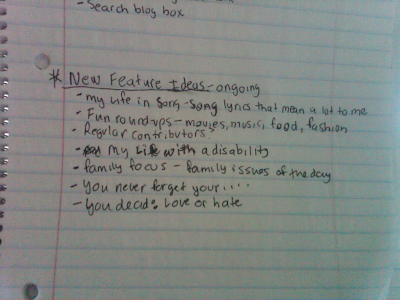 - Search blog box
* New Feature Ideas - ongoing
- my life in song - song lyrics that mean a lot to me
- Fun roundups - movies, music, food, fashion
- Regular contributors?
- my life with a disability
- family focus - family issues of the day
- You never forget your....
- You decide: Love or hate